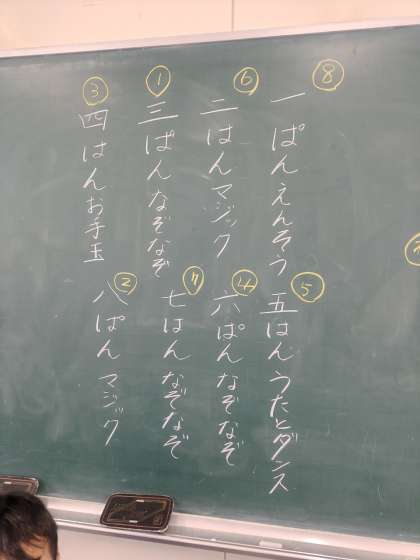 ⑧
一ぱん えんそう
⑥
二はん マジック
①
三ぱん なぞなぞ
③
四はん お手玉
⑤
五はん うたとダンス
④
六ぱん なぞなぞ
⑦
七はん なぞなぞ
②
八ぱん マジック